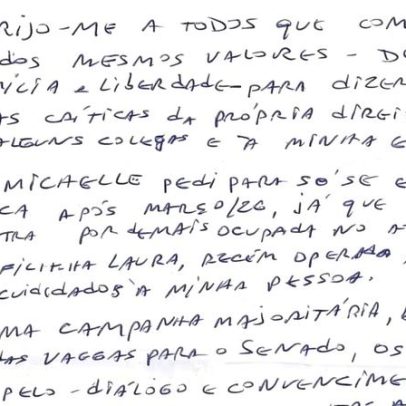 RIJO-ME A TODOS QUE COM
DOS MESMOS VALORES - D
NCIA E LIBERDADE - PARA DIZER
AS CRÍTICAS DA PRÓPRIA DIREI
ALGUNS COLEGAS E À MINHA E
MICHELLE PEDI PARA SÓ SE E
CA APÓS MARÇO/26, JÁ QUE
TRA POR DEMAIS OCUPADA NO A
FILINHA LAURA, RECÉM OPERADA
CUIDADOS À MINHA PESSOA.
MA CAMPANHA MAJORITÁRIA,
DAS VAGAS PARA O SENADO, OS
PELO - DIÁLOGO E CONVENCIME